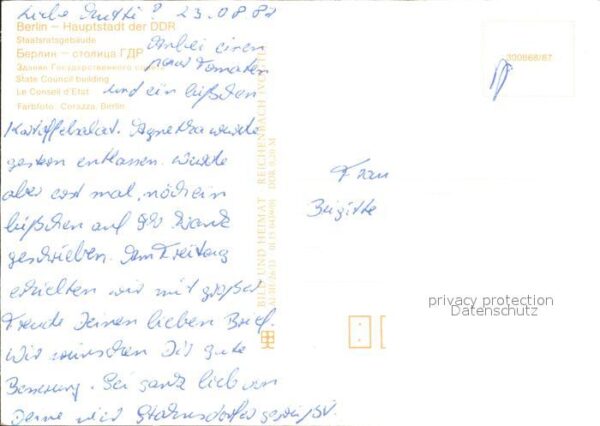 Liebe Mutti! 23.08.87
Berlin – Hauptstadt der DDR
Staatsratsgebäude
Берлин – столица ГДР
Здание Государственного
State Council building
Le Conseil d'Etat
Farbfoto: Corazza, Berlin
Anbei einen
paar Tomaten
und ein bißchen
Kartoffelsalat. Agnethe wurde
gestern entlassen. Wurde
aber erst mal, noch ein
bißchen auf
geschrieben. Am Freitag
erhielten wir mit großer
Freude Deinen lieben Brief.
Wir wünschen Dir gute
Besserung. Sei ganz lieb von
Stahnsdorfer gegrüßt.
BILD UND HEIMAT REICHENBACH (VOGTL)
300868/87
Frau
Brigitte
privacy protection
Datenschutz